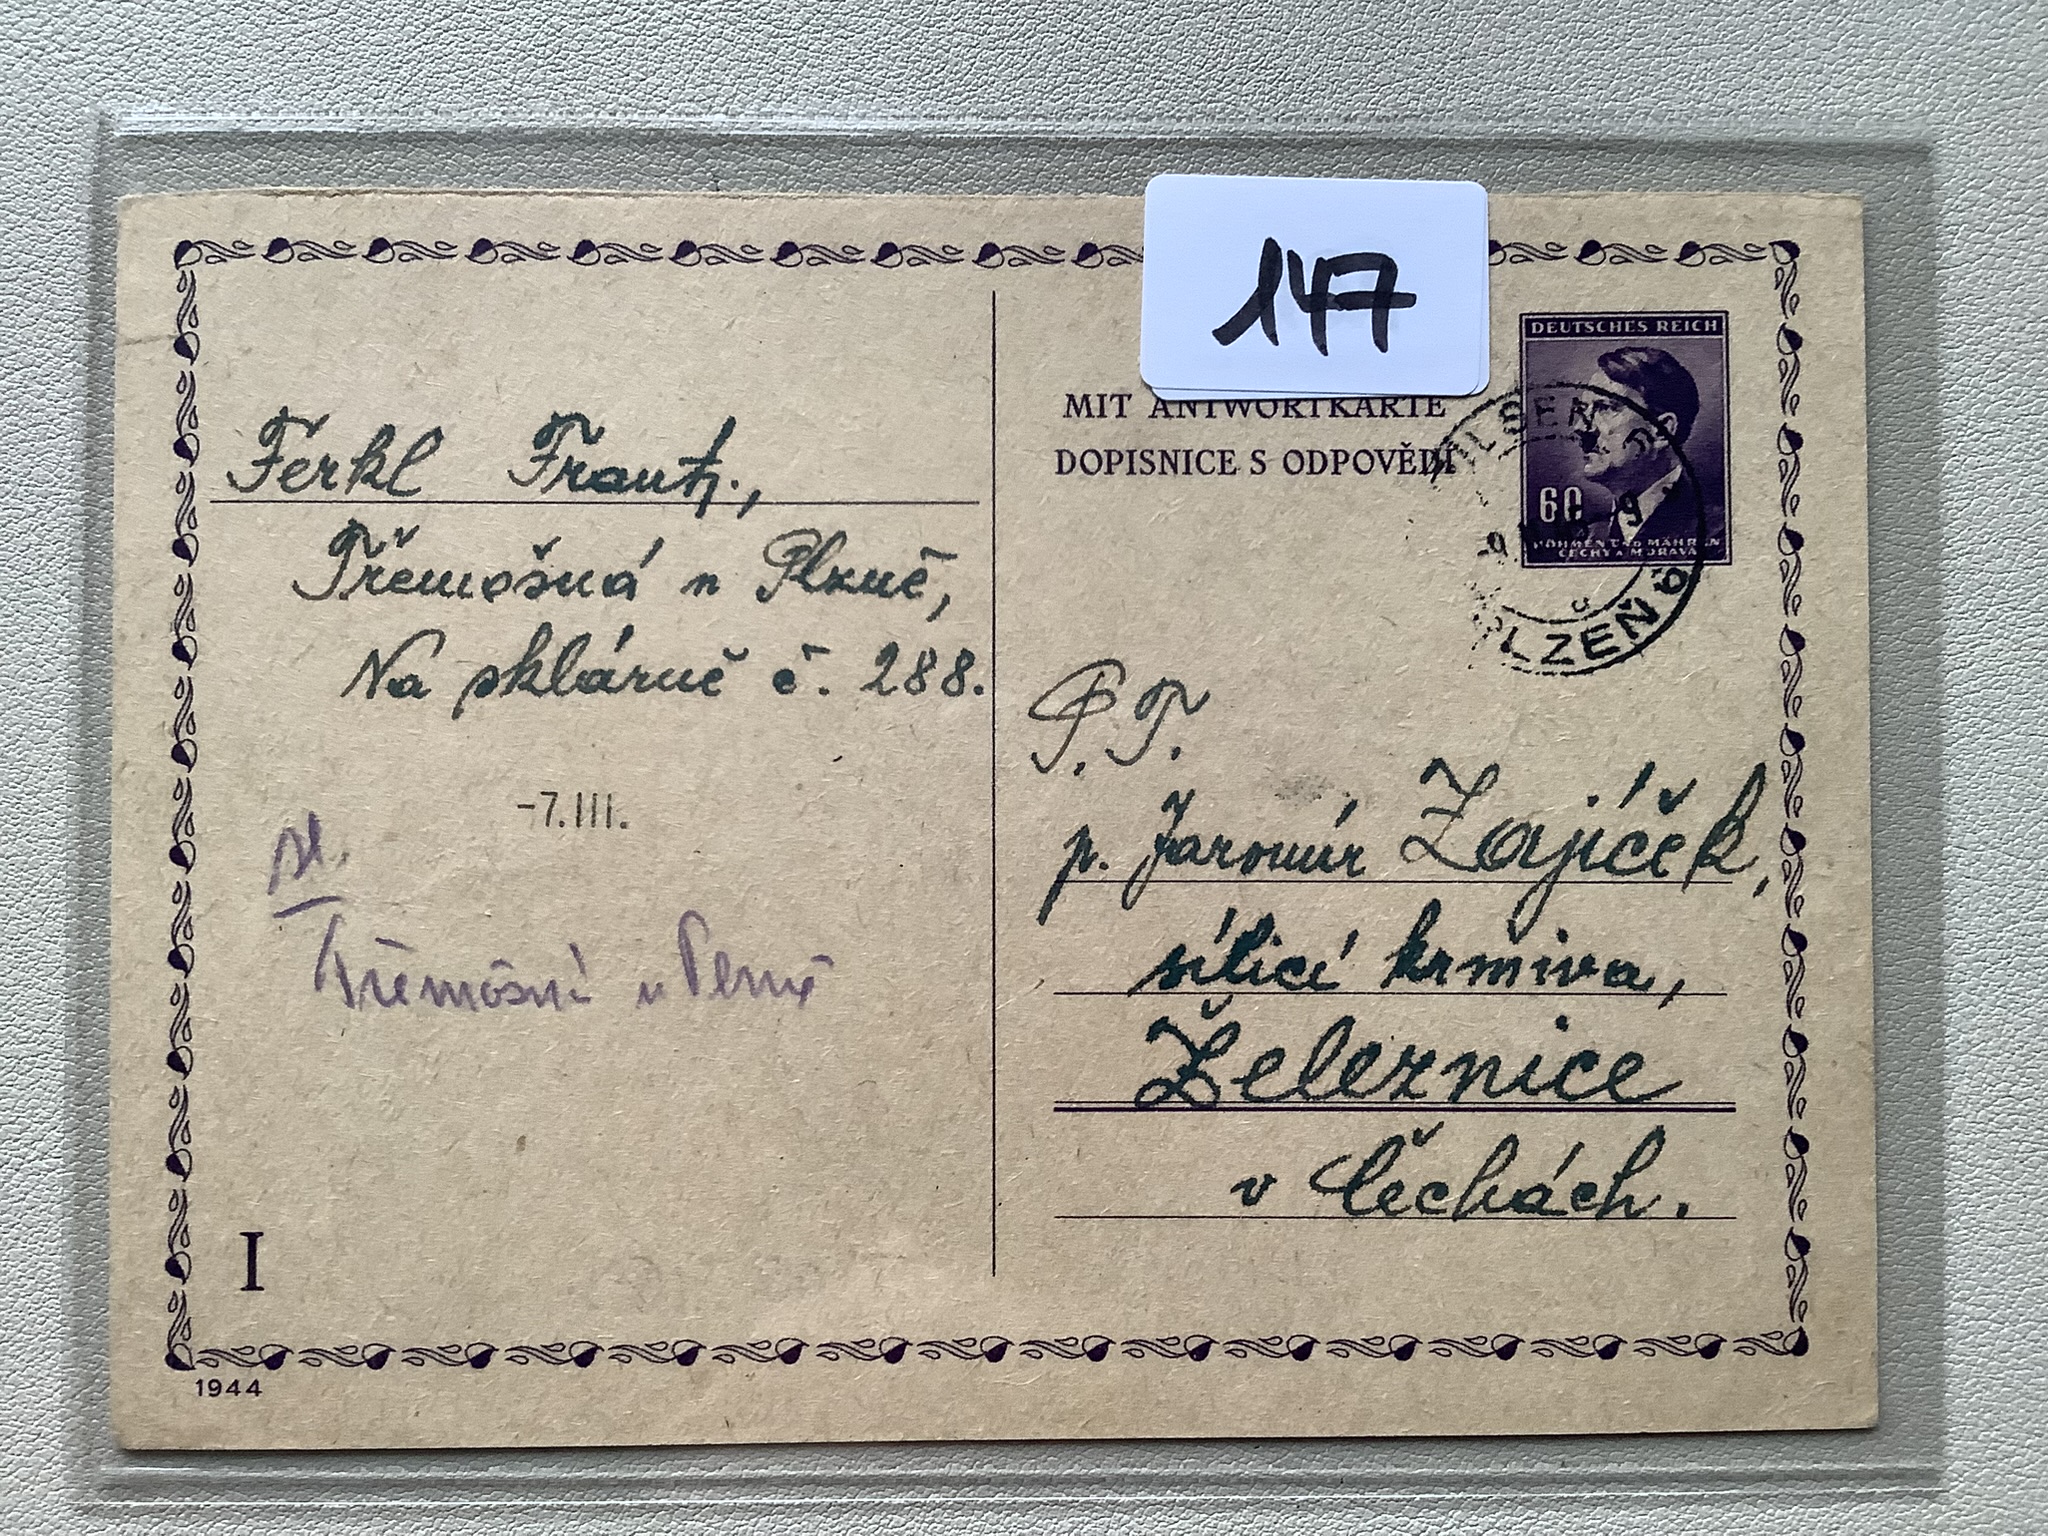 147
DEUTSCHES REICH
60
BÖHMEN UND MÄHREN
ČECHY A MORAVA
PILSEN 6
PLZEŇ 6
MIT ANTWORTKARTE
DOPISNICE S ODPOVĚDÍ
Ferkl Frant.,
Třemošná n Plzně,
Na sklárně č. 288.
-7.III.
Třemošná u Plzně
P.T.
p. Jaromír Zajíček,
sílící krmiva,
Železnice
v Čechách.
I
1944